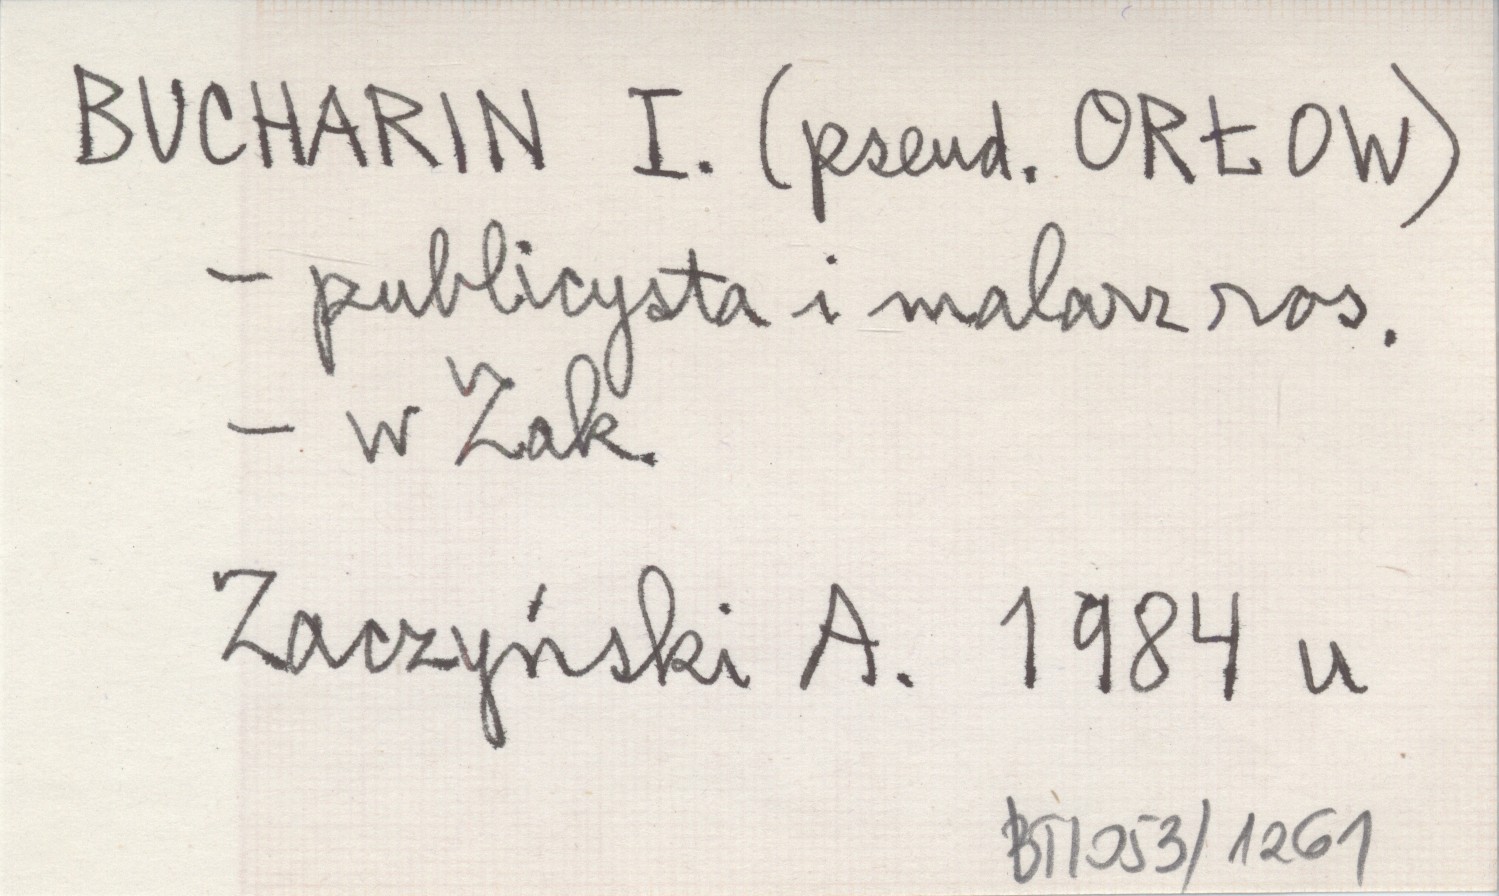 BUCHARIN I. (pseud. ORŁOW)
- publicysta i malarz ros.
- w Zak.
Zaczyński A. 1984 u
BT/053/1261